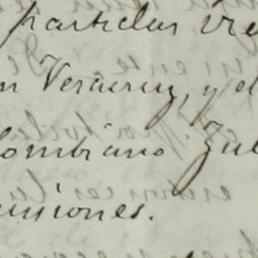 particular
n Veracruz, y d
ombiano Zul
usiones.